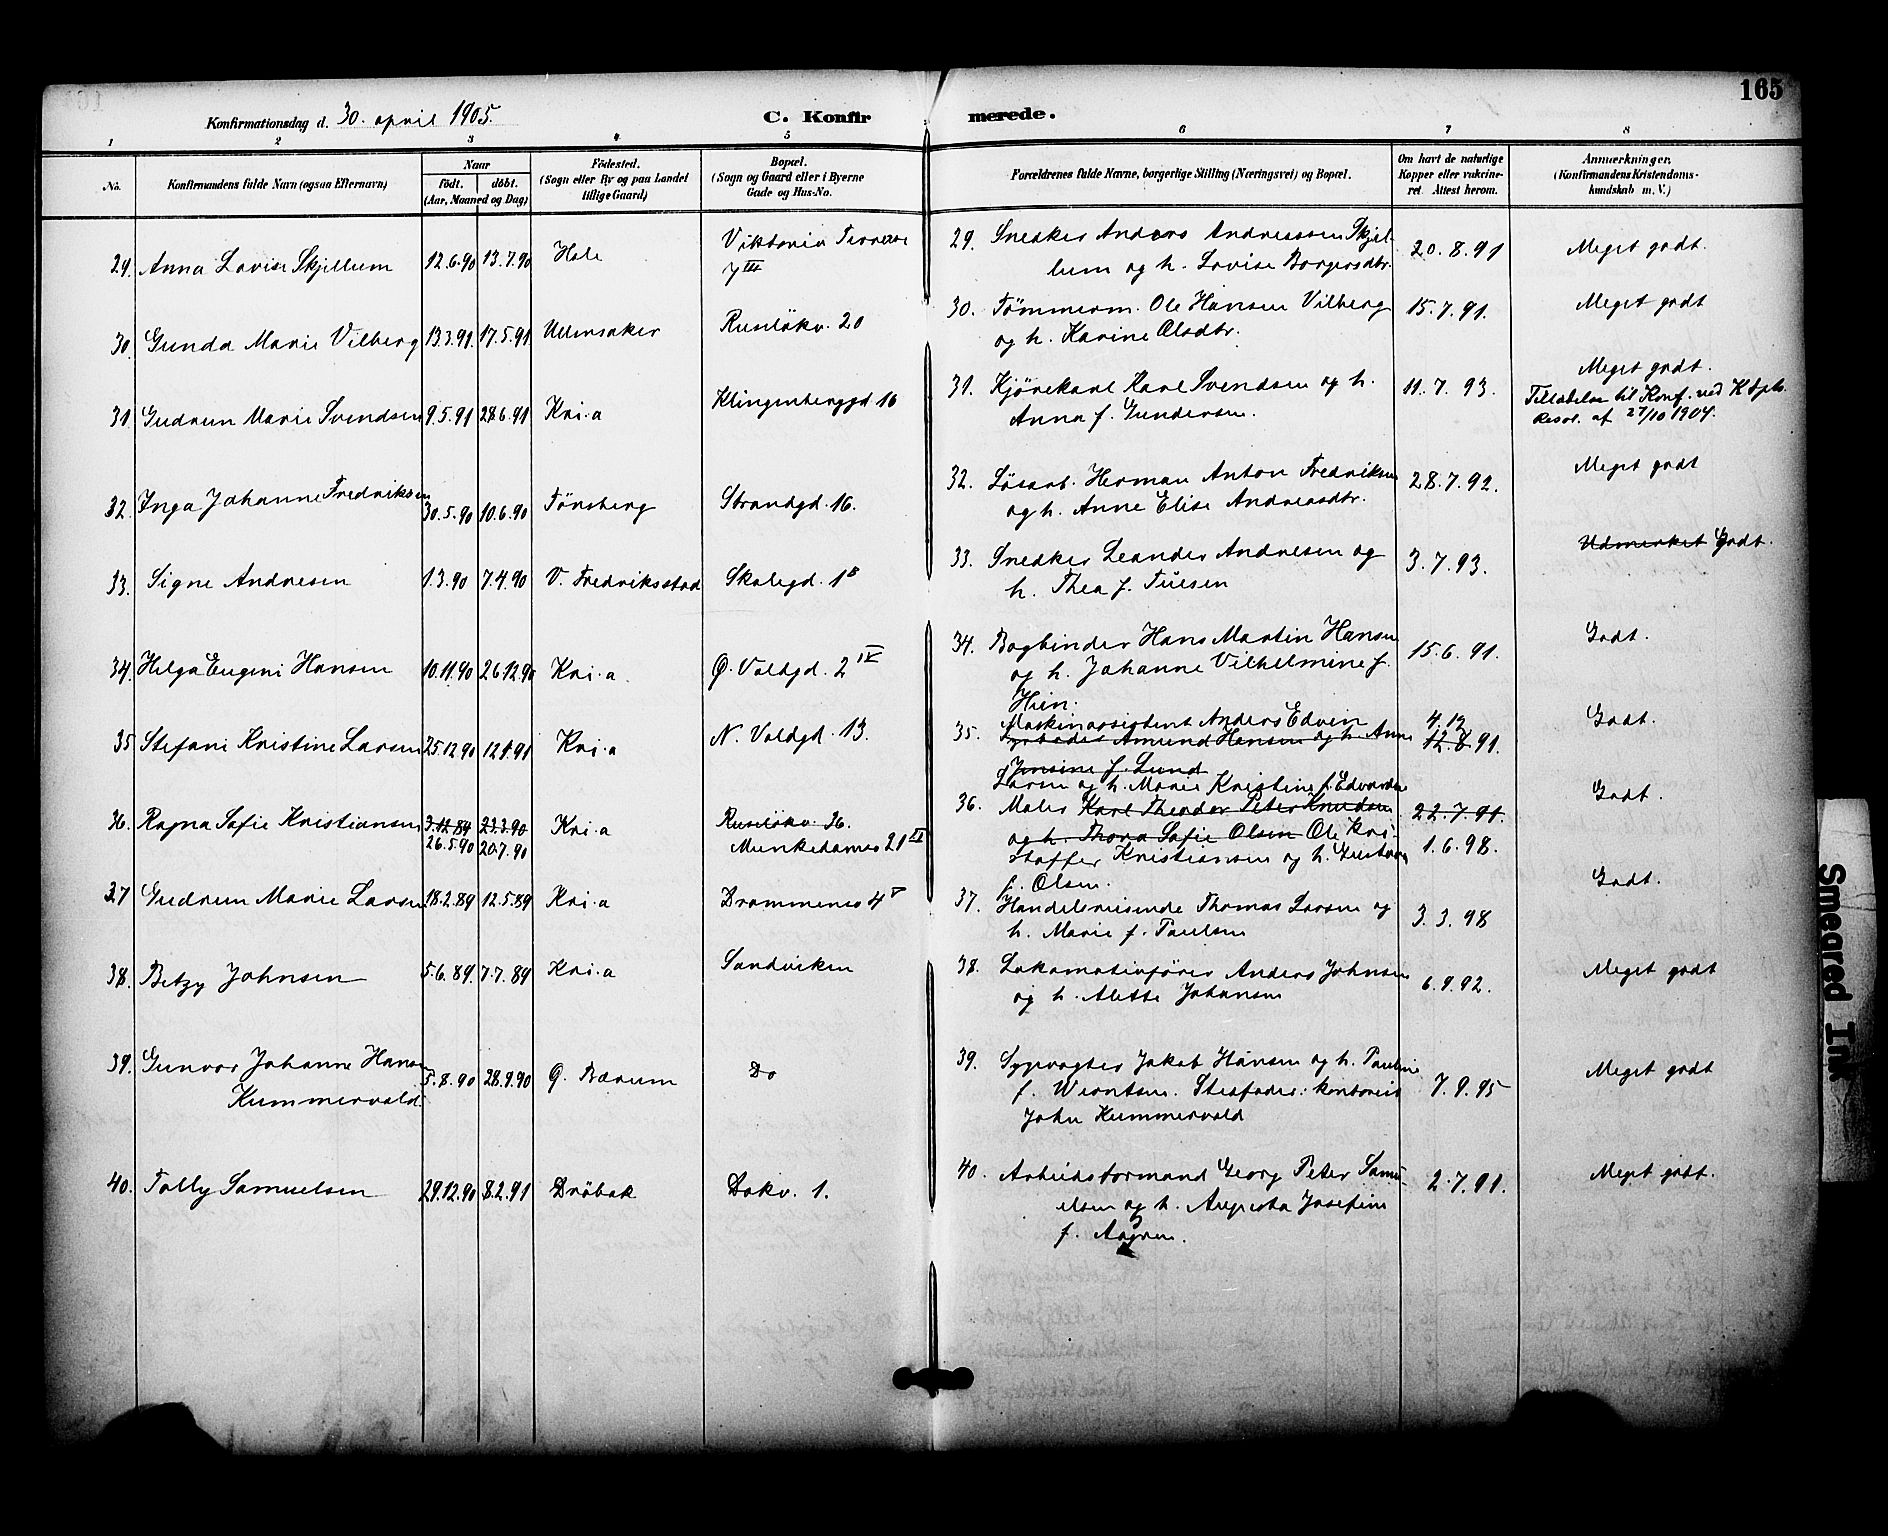 165
Konfirmationsdag d. 30. april 1905.
C. Konfirmerede.
1 2 3 4 5 6 7 8
No.
Konfirmandens fulde Navn (ogsaa Efternavn)
Naar
födt. döbt.
(Aar, Maaned og Dag)
Födested.
(Sogn eller By og paa Landet
tillige Gaard)
Bopæl.
(Sogn og Gaard eller i Byerne
Gade og Hus-No.
Forældrenes fulde Navne, borgerlige Stilling (Næringsvei) og Bopæl.
Om havt de naturlige
Kopper eller vakcine-
ret. Attest herom.
Anmærkninger.
(Konfirmandens Kristendoms-
kundskab m. V.)
29. Anna Lovise Skjellum 12.6.90 13.7.90 Hole Viktoria Terrasse
7 III
29. Snedker Anders Andreassen Skjel-
lum og h. Lovise Borgersdtr. 20.8.91 Meget godt.
30. Gunda Marie Vilberg 13.3.91. 17.5.91 Ullensaker Ruselökv. 20
30. Tömmerm. Ole Hansen Vilberg
og h. Karine Olsdtr. 15.7.91. Meget godt
31. Gudrun Marie Svendsen 9.5.91 28.6.91 Kri.a Klingenberggd 16
31. Kjörekarl Karl Svendsen og h.
Anna f. Gundersen. 11.7.93. Meget godt.
Tilladelse til Konf. ved K. Dpts.
Resol. af 27/10 1904.
32. Inga Johanne Fredriksen 30.5.90 10.6.90 Tönsberg Strandgd. 16.
32. Løsarb. Herman Anton Fredriksen
og h. Anne Elise Andreasdtr. 28.7.92. Meget godt
33. Signe Andresen 1.3.90 7.4.90 V. Fredriksstad Skolegd. 1 B
33. Snedker Leander Andresen og
h. Thea f. Tuesen 3.7.93. Udmerket Godt.
34. Helga Eugeni Hansen 10.11.90 26.12.90 Kri.a. Ø. Voldgd. 2 IV
34. Bogbinder Hans Martin Hansen
og h. Johanne Vilhelmine f.
Hien. 15.6.91. Godt.
35. Stefani Kristine Larsen 25.12.90 12.4.91 Kri.a N. Voldgd. 13.
Maskinassistent Anders Edvin
35. Fyrböder Amund Hansen og h. Anne
Jensine f. Lund
Larsen og h. Marie Kristine f. Edvardsen 4.12
12.8.91. Godt.
36. Ragna Sofie Kristiansen 3.12.89 23.3.90 Kri.a Ruselökv. 36.
26.5.90 20.7.90 Munkedamsv 21 II
36. Maler Karl Theodor Peter Knudsen
og h. Thora Sofie Olsen Ole Kri-
stoffer Kristiansen og h. Gustava
f. Olsen. 22.7.91.
1.6.98. Godt.
37 Gudrun Marie Larsen 18.2.89 12.5.89 Kri.a Drammensv 4 V
37. Handelsreisende Thomas Larsen og
h. Marie f. Paulsen 3.3.98 Godt.
38. Betzy Johnsen 5.6.89. 7.7.89 Kri.a Sandviken
38. Lokomotivfører Anders Johnsen
og h. Alette Johansen 6.9.92. Meget godt
39. Gunvor Johanne Hansen
Kummervold. 5.8.90 28.9.90 Ø. Bærum Do
39. Sygevogter Jakob Hansen og h. Pauline
f. Werntsen. Stedfader: kontorist
John Kummervold 7.9.95 Meget godt
40. Tolly Samuelsen 29.12.90 8.2.91 Dröbak Dokv. 1.
40. Arbeidsformand Georg Peter Samu-
elsen og h. Augusta Josefine
f. Aagren. 2.7.91. Meget godt.
Smeared Ink